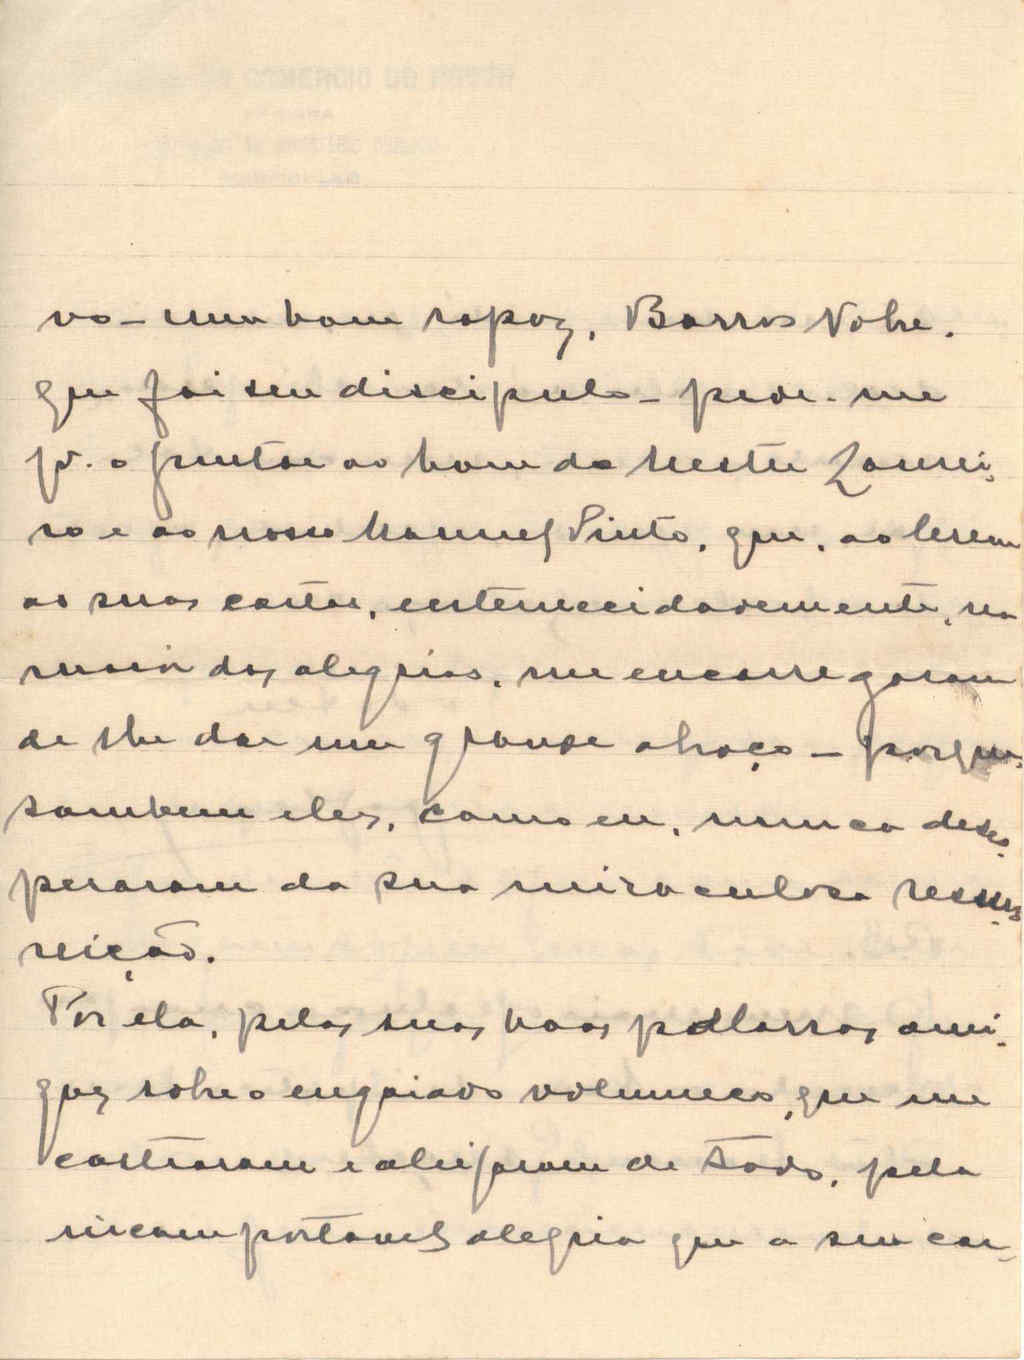 vo - um bom rapaz, Barros Nobre.
que foi seu discipulo - pede-me
pª. o juntar ao bom do Mestre Lourei-
ro e ao nosso Manuel Pinto, que, ao lerem
as suas cartas, enternecidamente, na
maior das alegrias, me encarregaram
de lhe dar um grande abraço - porque
tambem eles, como eu, nunca deses-
peraram da sua miraculosa ressur-
reição.
Por ela, pelas suas boas palavras ami-
gas sobre o engaiado volumeco, que me
castraram e aleijaram de todo, pela
incomportavel alegria que a sua car-